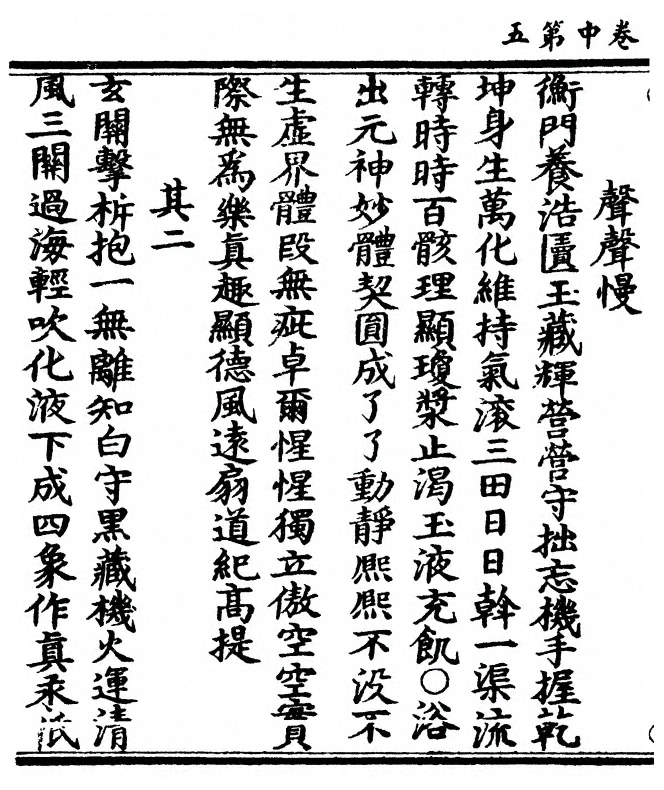 卷中第五
聲聲慢
衡門養浩匱玉藏輝營營守拙忘機手握乾
坤身生萬化維持氣滚三田日日斡一渠流
轉時時百骸理顯瓊漿止渴玉液充飢〇浴
出元神妙體契圓成了了動靜熙熙不没不
生虛界體段無疵卓爾惺惺獨立傲空空實
際無爲樂真趣顯德風遠扇道紀高提
其二
玄關擊柝抱一無離知白守黑藏機火運清
風三關過海輕吹化液下成四象作真汞